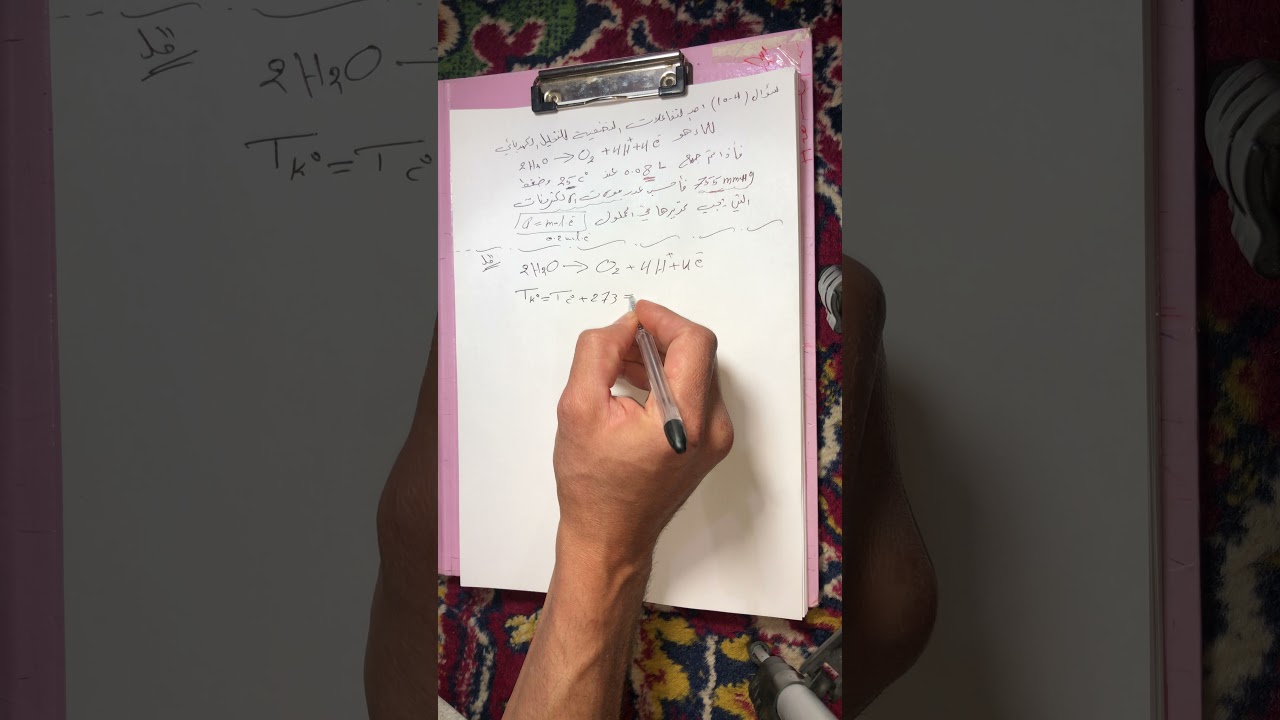 سؤال (4-15) احد التفاعلات النصفية للتحليل الكهربائي
للماء هو 2H₂O → O₂ + 4H⁺ + 4ē
فأذا تم جمع 0.08 L عند 25 C° وضغط
755 mmHg فأحسب عدد مولات الالكترونات
التي يجب تمريرها في المحلول Q = mol.ē
0.2 mol.ē
حل
2H₂O → O₂ + 4H⁺ + 4ē
T k° = T c° + 273 =
حل
2H₂O
T k° = T c°